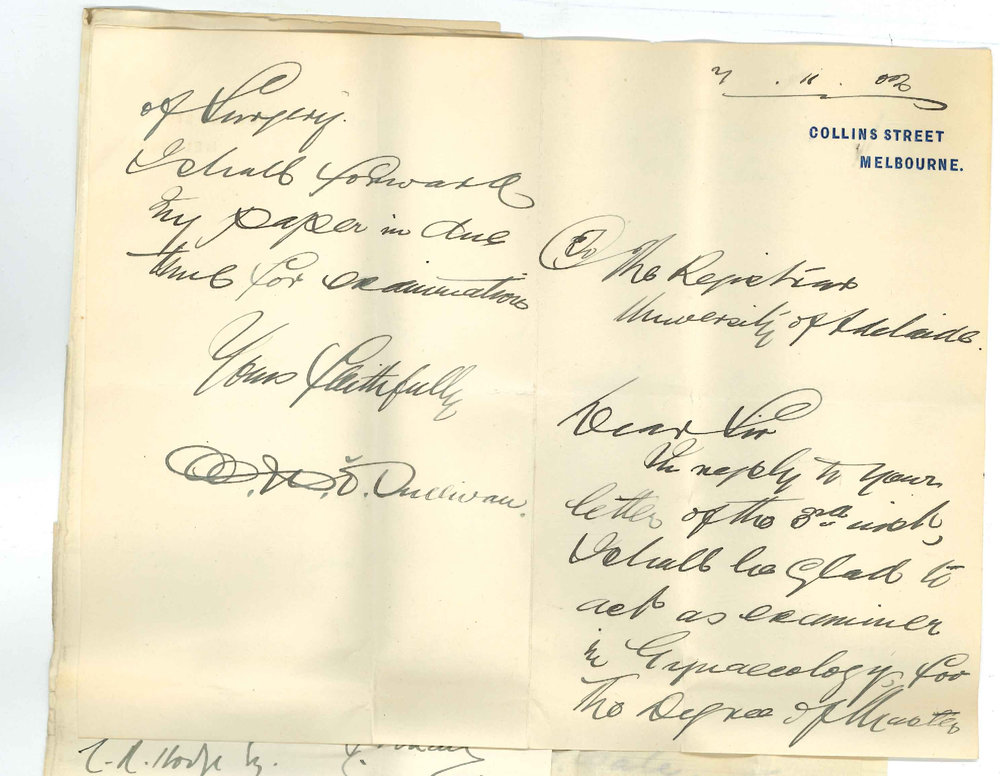 7 . 11 . 02
COLLINS STREET
MELBOURNE.
To The Registrar
University of Adelaide.
Dear Sir
In reply to your
letter of the 3rd inst,
I shall be glad to
act as examiner
in Gynaecology for
the Degree of Master
of Surgery.
I shall forward
my paper in due
time for examination
Yours faithfully
O'Sullivan.
C. R. Hodge